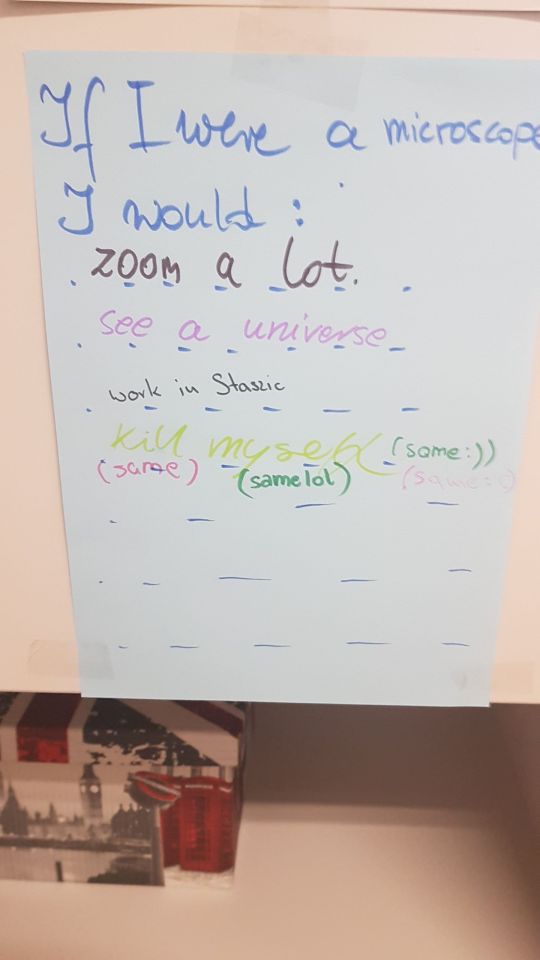 If I were a microscope
I would:
zoom a lot.
see a universe
work in Staszic
kill myself (same:))
(same) (same lol) (same:c)